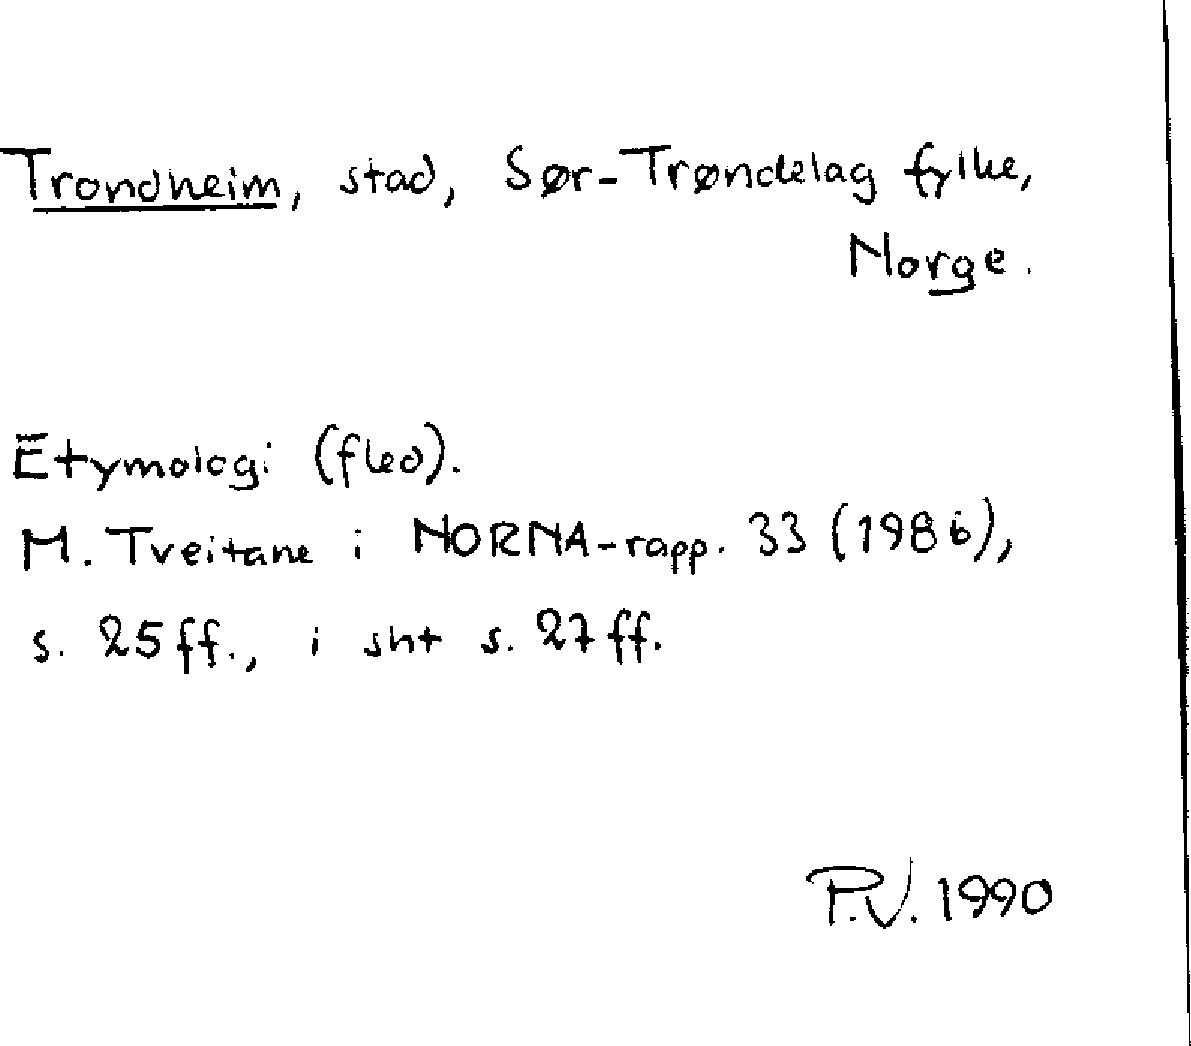 Trondheim, stad, Sør-Trøndelag fylke,
Norge.
Etymologi (fled).
M. Tveitane i NORNA-rapp. 33 (1986),
s. 25 ff., i sht s. 27 ff.
P.V. 1990